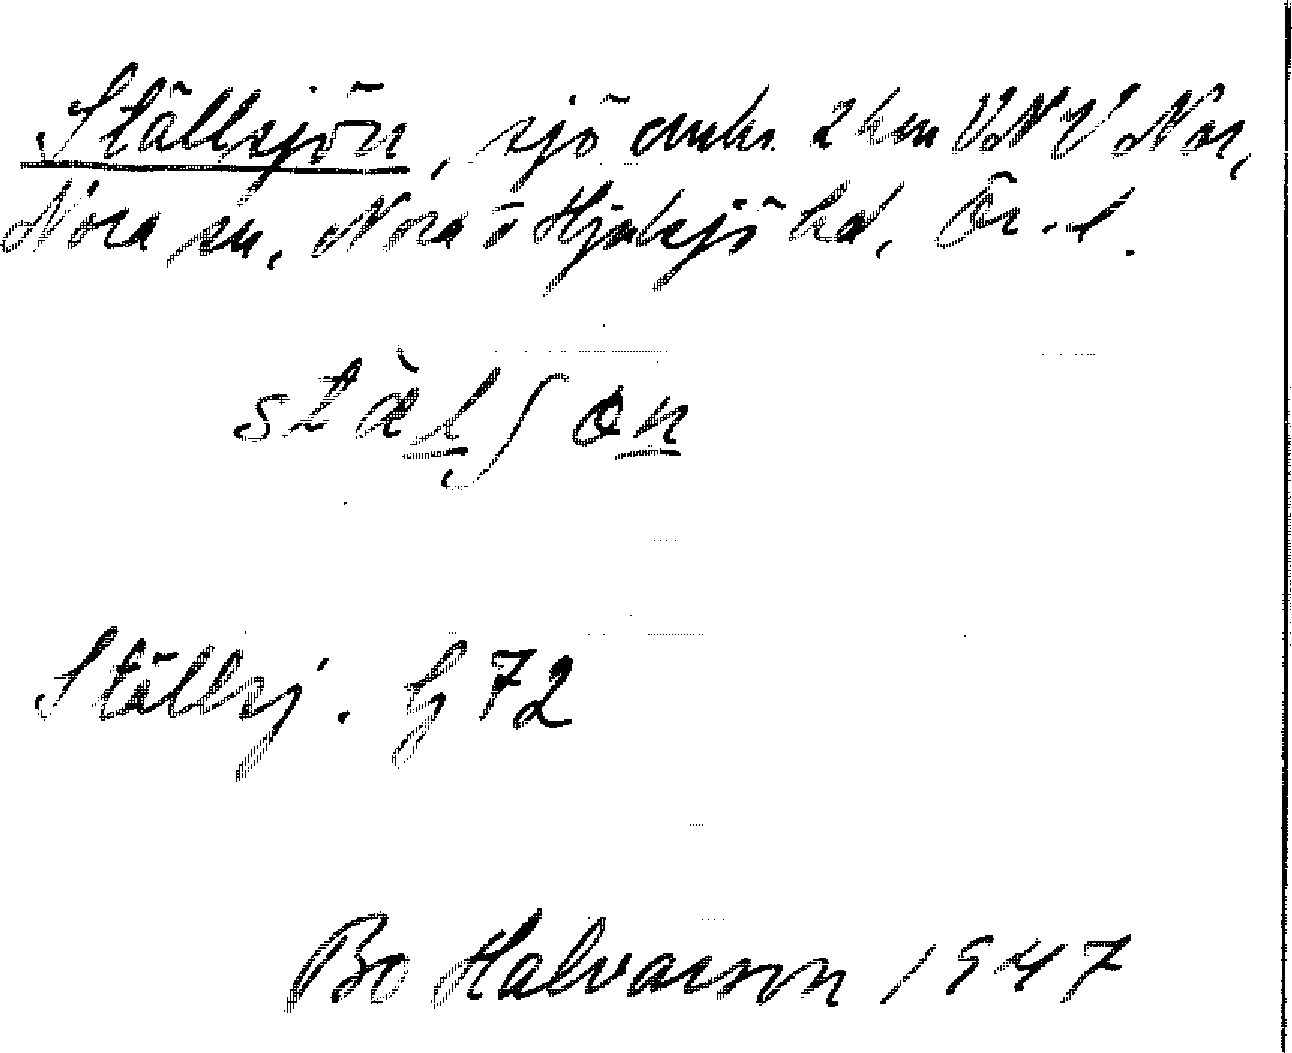 Ställsjön, sjö omkr. 2 km VNV Nor,
Nora sn, Nora o Hjulsjö hd, Ör. l.
stæ̀lʃɵn
Ställsj. G 72
Bo Halvarson 1947